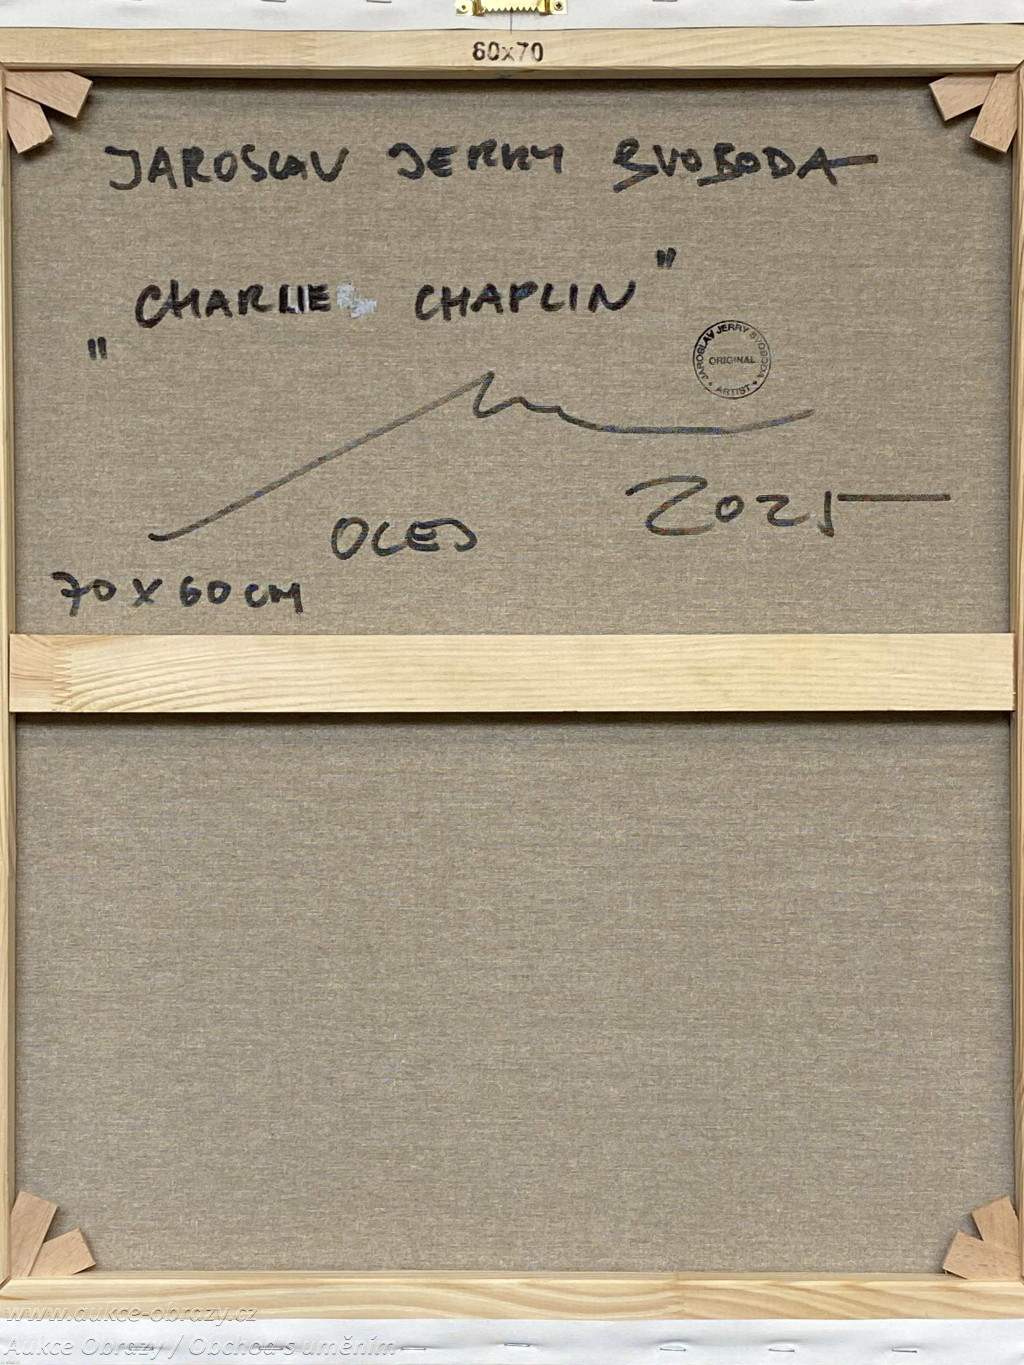 60x70
JAROSLAV JERRY SVOBODA
"CHARLIE CHAPLIN"
JAROSLAV JERRY SVOBODA
ORIGINAL
• ARTIST •
2025
OLEJ
70 X 60 CM
www.aukce-obrazy.cz
Aukce Obrazy / Obchod s uměním